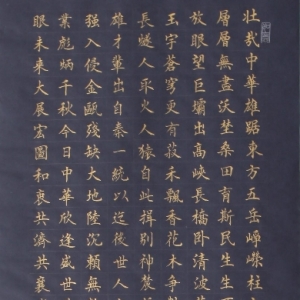 壯哉中華雄踞東方五岳崢嶸柱
層層無盡沃埜桑田育斯民生生
放眼望巨壩出高峽長橋卧清波
玉宇蒼穹更有菽禾飄香花木爭
長燧人火人猿自此揖別神農
雄才輩出自秦一統以迄後世人
强入侵金甌殘缺大地陸沉賴無
業彪炳千秋今日中華欣逢盛世
眼未來大展宏圖和衷共濟共襄